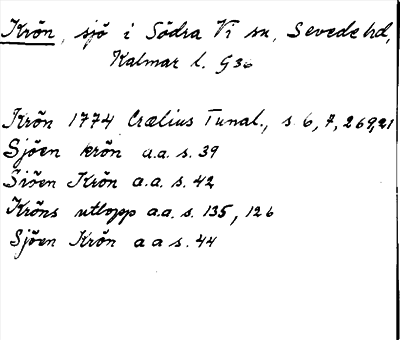 Krön, sjö i Södra Vi sn, Sevede hd,
Kalmar l. G36
Krön 1774 Crælius Tunal., s 6, 7, 269, 21
Sjöen krön a.a. s. 39
Siöen Krön a.a. s. 42
Kröns utlopp a.a. s. 135, 126
Sjöen Krön a a s. 44